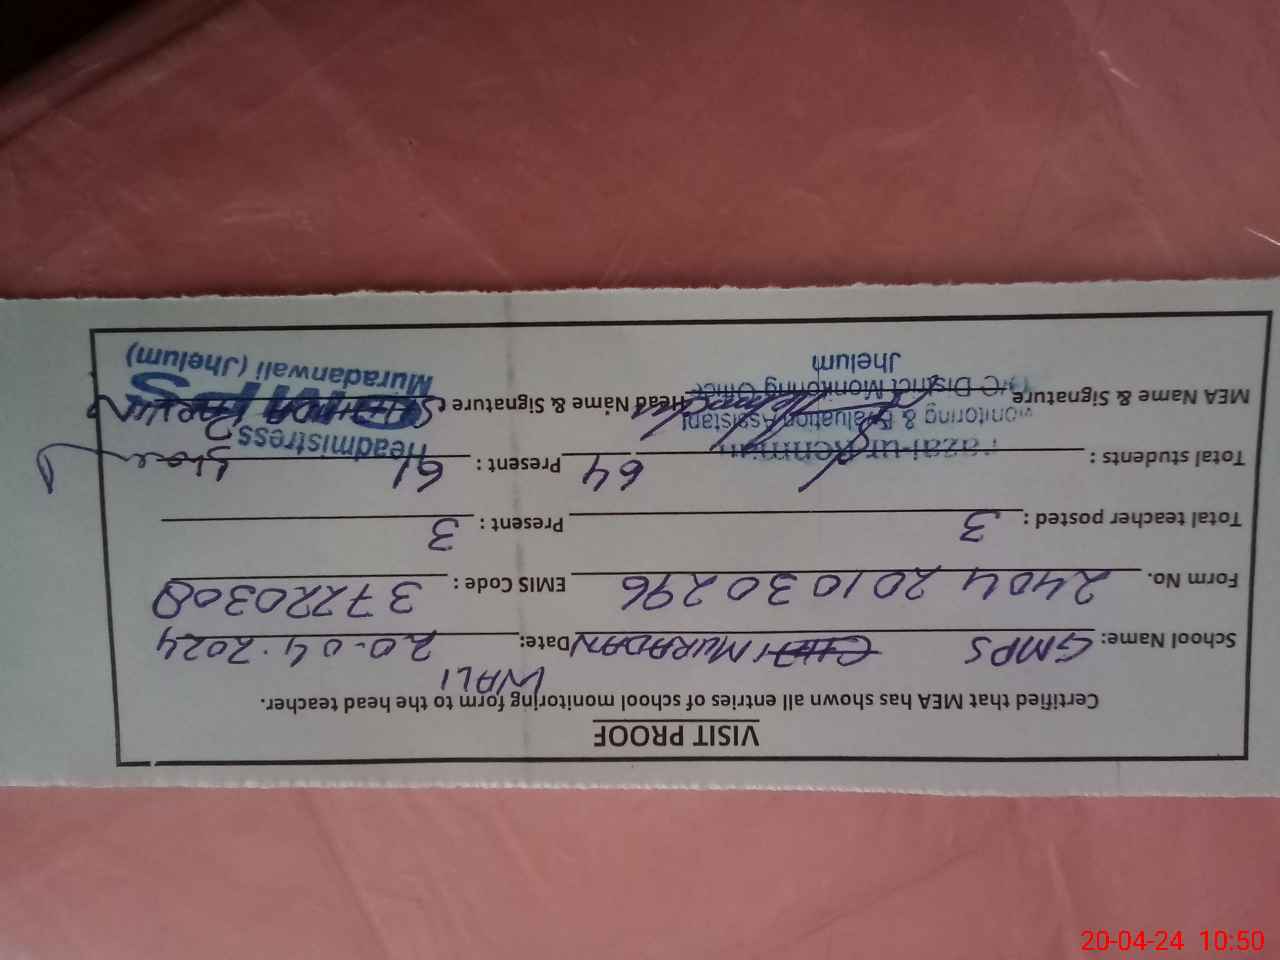 VISIT PROOF
Certified that MEA has shown all entries of school monitoring form to the head teacher.
WALI
School Name: GMPS MURADAN Date: 20.04.2024
Form No. 2404 2010 30296 EMIS Code: 37220308
Total teacher posted: 3 Present: 3
Total students: 64 Present: 61
Fazal-ur-Rehman
Headmistress
Monitoring & Evaluation Assistant
MEA Name & Signature Head Name & Signature SHAHIDA PARVIN
O/O District Monitoring Office
GMPS
Jhelum
Muradanwali (Jhelum)
20-04-24 10:50